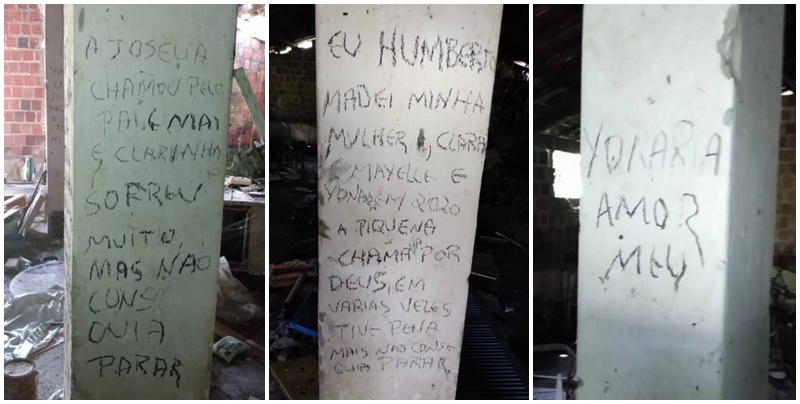 A JOSELIA
CHAMOU PELO
PAI E MAI
E CLARINHA
SOFREU
MUITO,
MAS NAO
CONS
QUIA
PARAR
EU HUMBERTO
MADEI MINHA
MULHER, CLARA
E MAYELLE E
YONA EM 2020
A PIQUENA
CHAMA POR
DEUS, EM
VARIAS VEZES
TIVE PENA
MAIS NAO CONSE
QUIA PARAR
YONARIA
AMOR
MEU